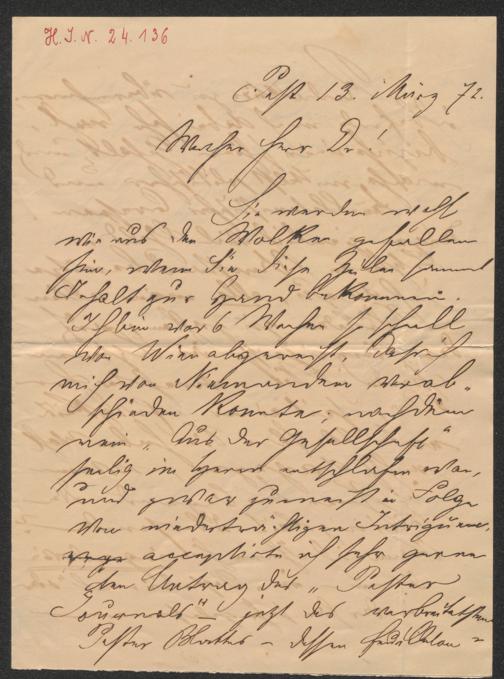 H.I.N. 24.136
Pest 13. März 72.
Werther Herr Dr!
Sie werden wohl
wie aus den Wolken gefallen
sein, wenn Sie diese Zeilen sammt
Inhalt zur Hand bekommen.
Ich bin vor 6 Wochen so schnell
von Wien abgereist, daß ich
mich von Niemandem verab-
schieden konnte; nachdem
mein „Aus der Gesellschaft"
selig im Herrn entschlafen war,
und zwar zumeist in Folge
von niederträchtigen Intriguen,
acceptirte ich sehr gerne
den Antrag des „Pester
Journals" – jetzt des verbreitetsten
Pester Blattes – dessen Feuilleton-